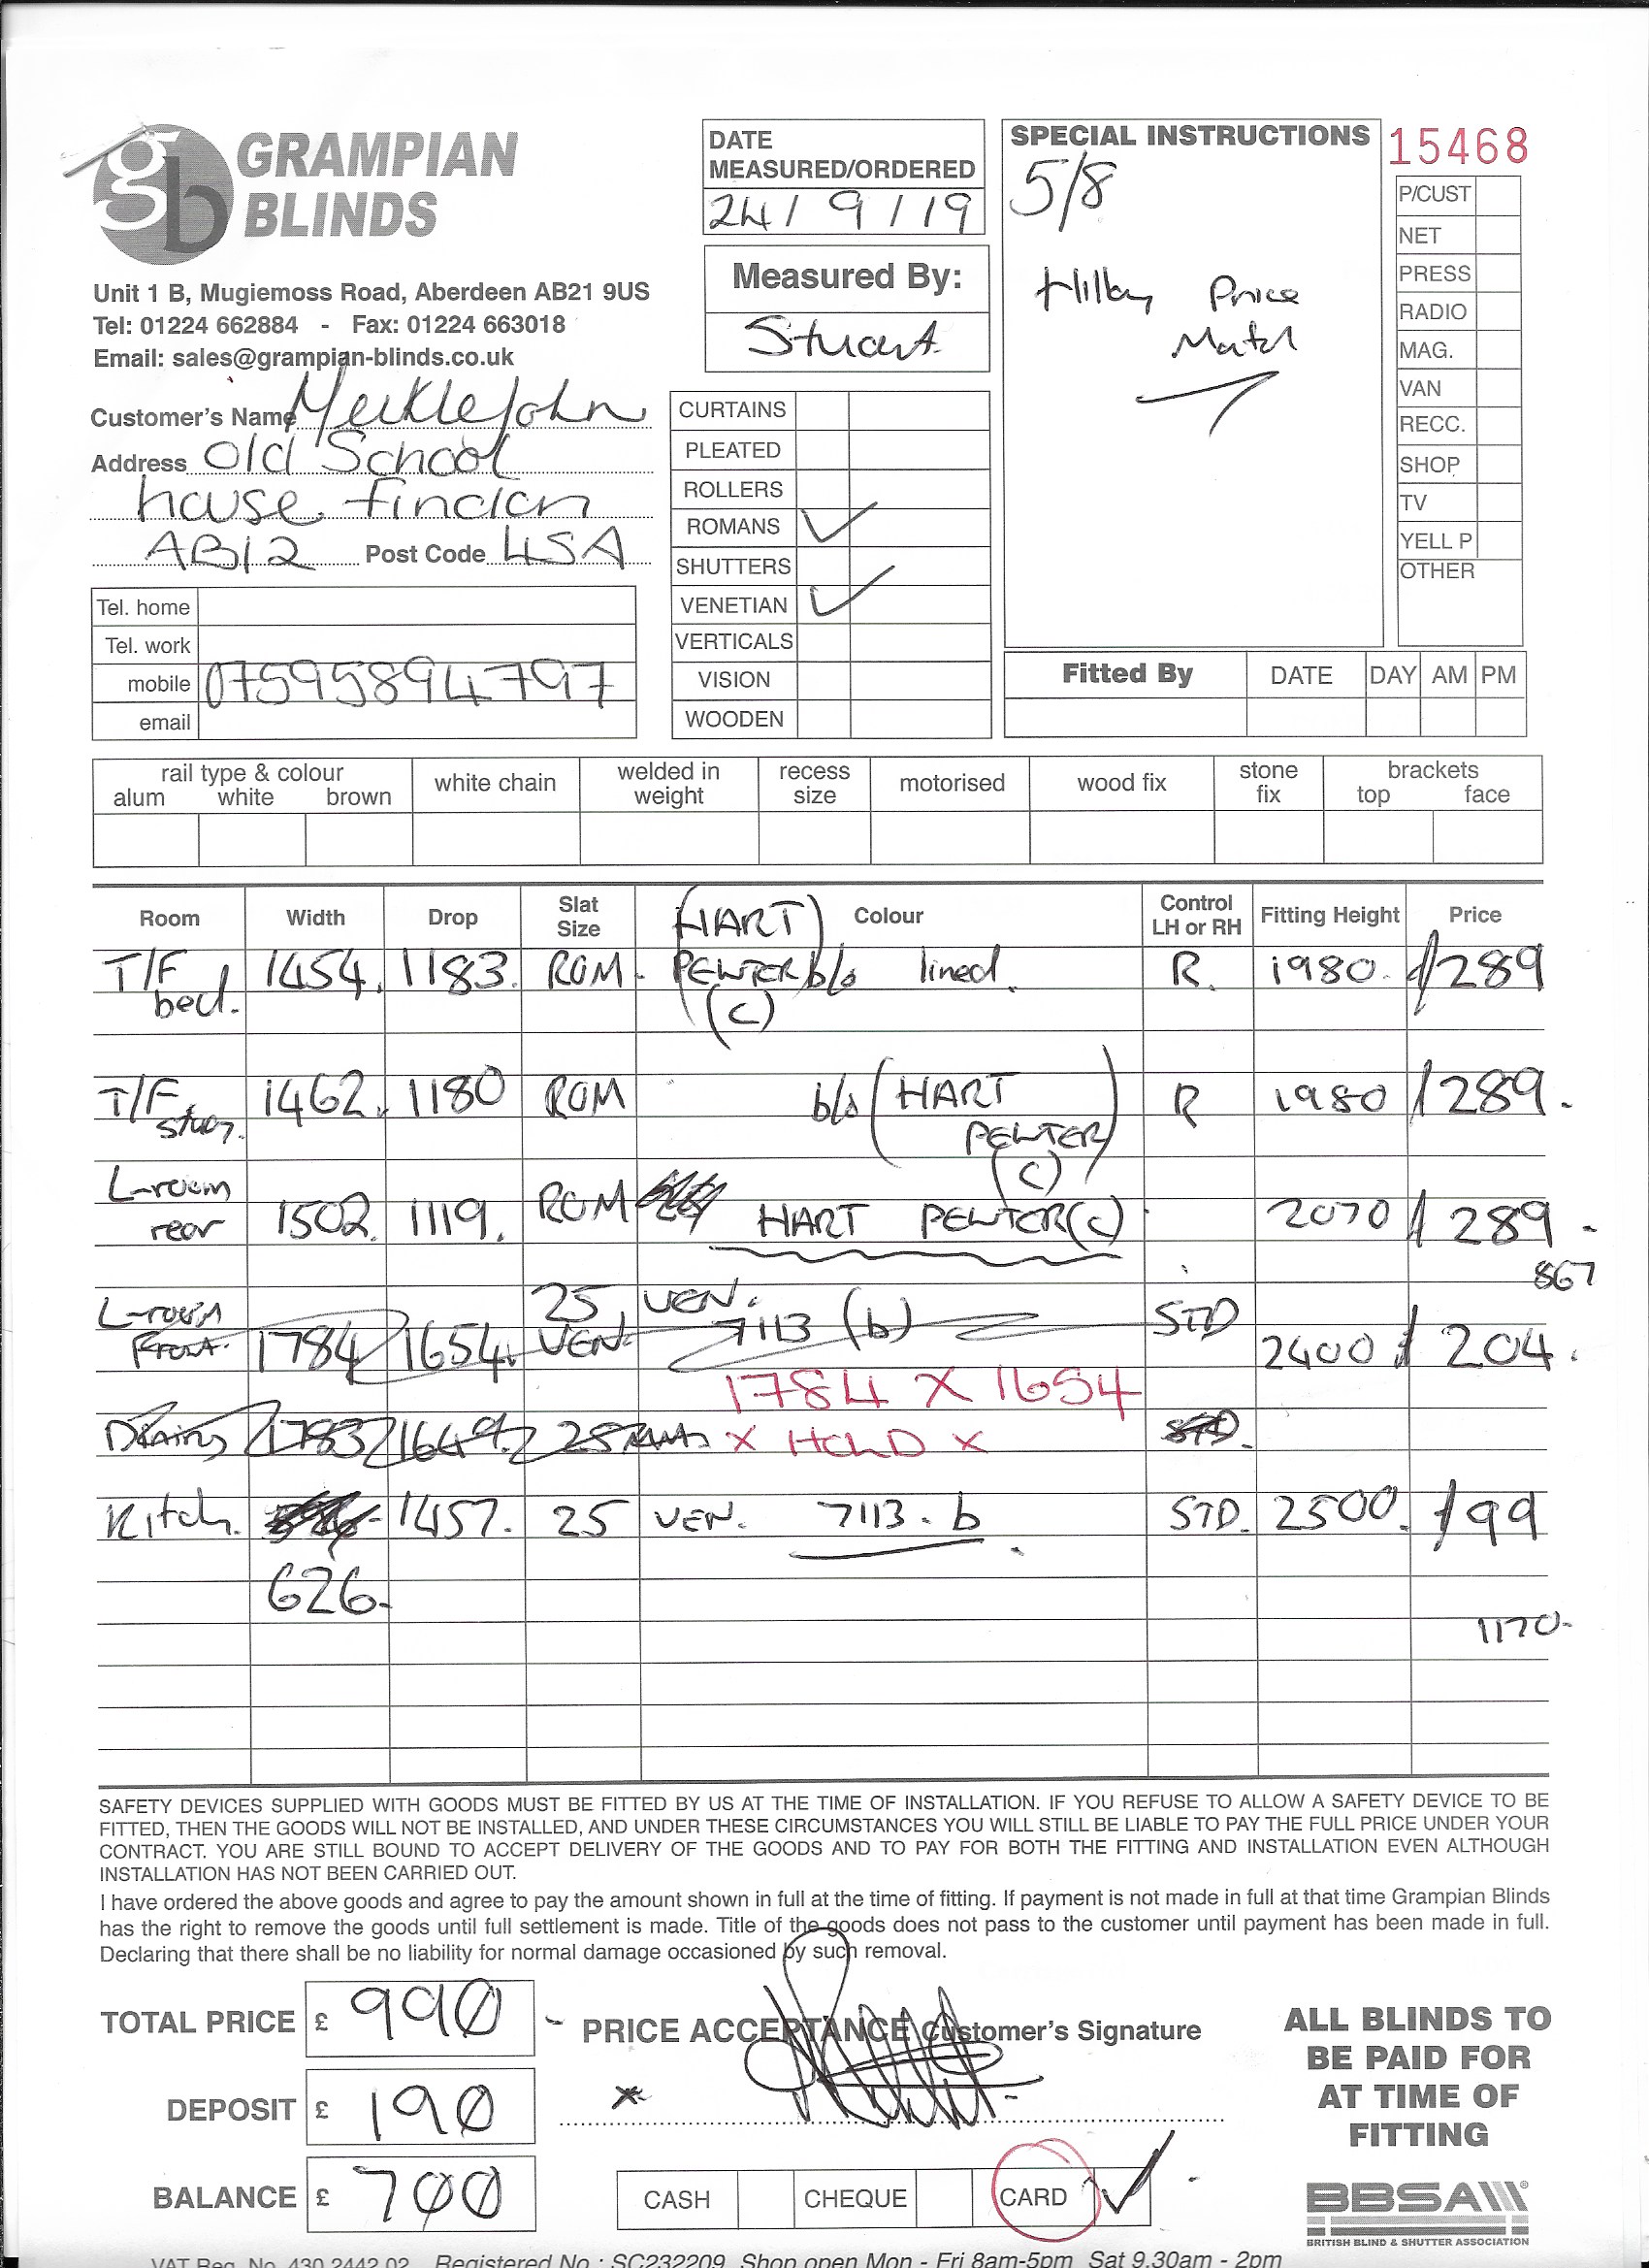 gb GRAMPIAN
BLINDS
Unit 1 B, Mugiemoss Road, Aberdeen AB21 9US
Tel: 01224 662884 - Fax: 01224 663018
Email: sales@grampian-blinds.co.uk
Customer's Name Meiklejohn
Address Old School
house Findon
AB12 Post Code 4SA
Tel. home
Tel. work
mobile 07595894797
email
DATE
MEASURED/ORDERED
24/9/19
Measured By:
Stuart
CURTAINS
PLEATED
ROLLERS
ROMANS ✓
SHUTTERS
VENETIAN ✓
VERTICALS
VISION
WOODEN
SPECIAL INSTRUCTIONS
5/8
Price
Match
15468
P/CUST
NET
PRESS
RADIO
MAG.
VAN
RECC.
SHOP
TV
YELL P
OTHER
Fitted By DATE DAY AM PM
rail type & colour
alum white brown
white chain
welded in
weight
recess
size
motorised
wood fix
stone
fix
brackets
top face
Room Width Drop Slat Size Colour Control LH or RH Fitting Height Price
T/F bed. 1454. 1183. ROM. (HART) PEWTER b/o lined. (C) R. 1980. 289
T/F study. 1462. 1180 ROM b/o (HART PEWTER) (C) R 1980 289.
L-room rear 1502. 1119. ROM HART PEWTER (C) 2070 289 -
867
L-room Front. 1784 1654. 25 VEN. VEN. 7113 (b) STD 2400 204.
1784 X 1654
1783 1649. 25 x HOLD x STD.
Kitch. 1457. 25 VEN. 7113. b STD. 2500. 99
626.
1170-
SAFETY DEVICES SUPPLIED WITH GOODS MUST BE FITTED BY US AT THE TIME OF INSTALLATION. IF YOU REFUSE TO ALLOW A SAFETY DEVICE TO BE
FITTED, THEN THE GOODS WILL NOT BE INSTALLED, AND UNDER THESE CIRCUMSTANCES YOU WILL STILL BE LIABLE TO PAY THE FULL PRICE UNDER YOUR
CONTRACT. YOU ARE STILL BOUND TO ACCEPT DELIVERY OF THE GOODS AND TO PAY FOR BOTH THE FITTING AND INSTALLATION EVEN ALTHOUGH
INSTALLATION HAS NOT BEEN CARRIED OUT.
I have ordered the above goods and agree to pay the amount shown in full at the time of fitting. If payment is not made in full at that time Grampian Blinds
has the right to remove the goods until full settlement is made. Title of the goods does not pass to the customer until payment has been made in full.
Declaring that there shall be no liability for normal damage occasioned by such removal.
TOTAL PRICE £ 990 -
DEPOSIT £ 190
BALANCE £ 700
PRICE ACCEPTANCE Customer's Signature
x
CASH CHEQUE CARD ✓
ALL BLINDS TO
BE PAID FOR
AT TIME OF
FITTING
BBSA
BRITISH BLIND & SHUTTER ASSOCIATION
VAT Reg. No. 430 2442 02 Registered No.: SC232209 Shop open Mon - Fri 8am-5pm Sat 9.30am - 2pm